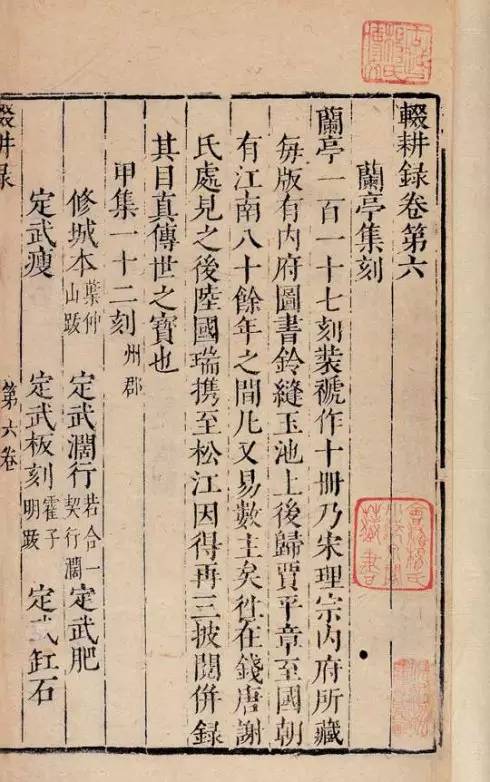 輟耕録卷第六
蘭亭集刻
蘭亭一百一十七刻裝褫作十冊乃宋理宗內府所藏
每版有內府圖書鈐縫玉池上後歸賈平章至國朝
有江南八十餘年之間凡又易數主矣徃在錢唐謝
氏處見之後陸國瑞携至松江因得再三披閱併錄
其目真傳世之寶也
甲集一十二刻 州郡
修城本 葉仲山跋 定武濶行 若合一契行濶 定武肥
定武瘦 定武板刻 霍子明跋 定武缸石
輟耕录 第六卷
藏書